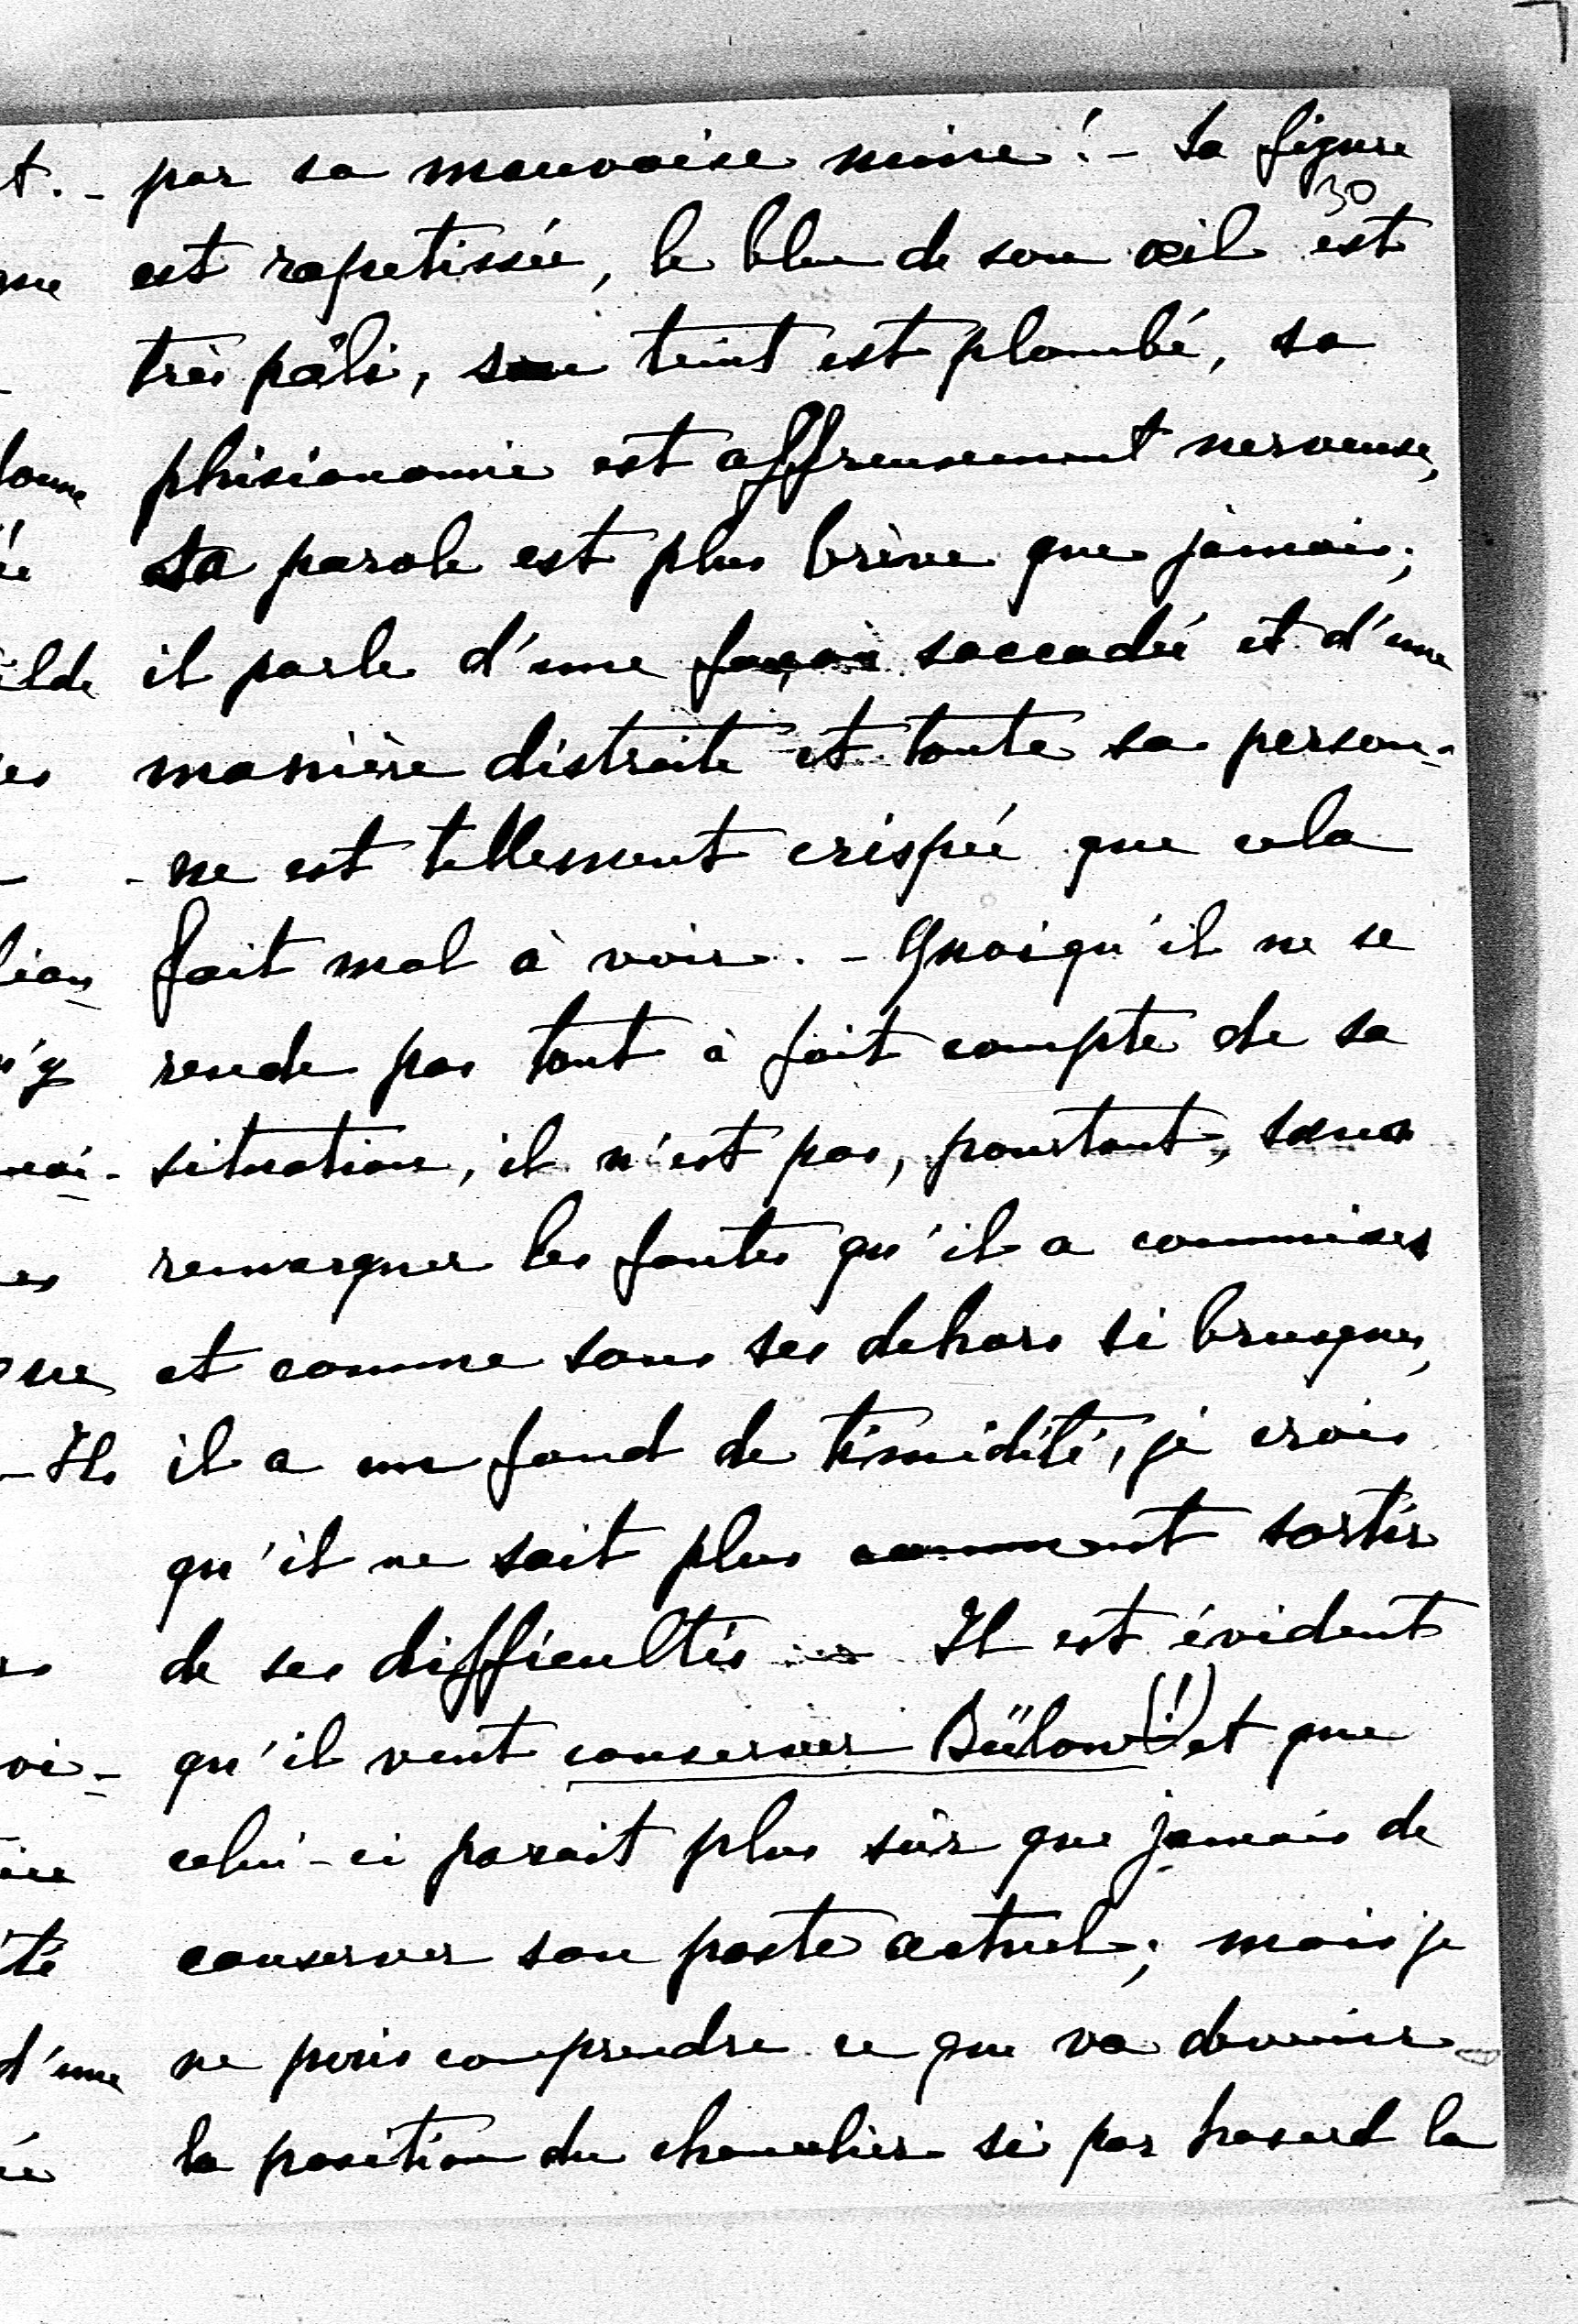 par sa mauvaise mine! - Sa figure
30
est rapetissée, le bleu de son œil est
très pâli, son teint est plombé, sa
phisionomie est affreusement nerveuse,
sa parole est plus brève que jamais;
il parle d'une façon saccadée et d'une
manière distraite et toute sa person-
-ne est tellement crispée que cela
fait mal à voir. - Quoiqu'il ne se
rende pas tout à fait compte de sa
situation, il n'est pas, pourtant, sans
remarquer les fautes qu'il a commises
et comme sous ses dehors si brusques,
il a un fond de timidité, je crois
qu'il ne sait plus comment sortir
de ses difficultés - Il est évident
qu'il veut conserver Bülow (!) et que
celui-ci parait plus sûr que jamais de
conserver son poste actuel; mais je
ne puis comprendre ce que va devenir
la position du chancelier si par hasard la